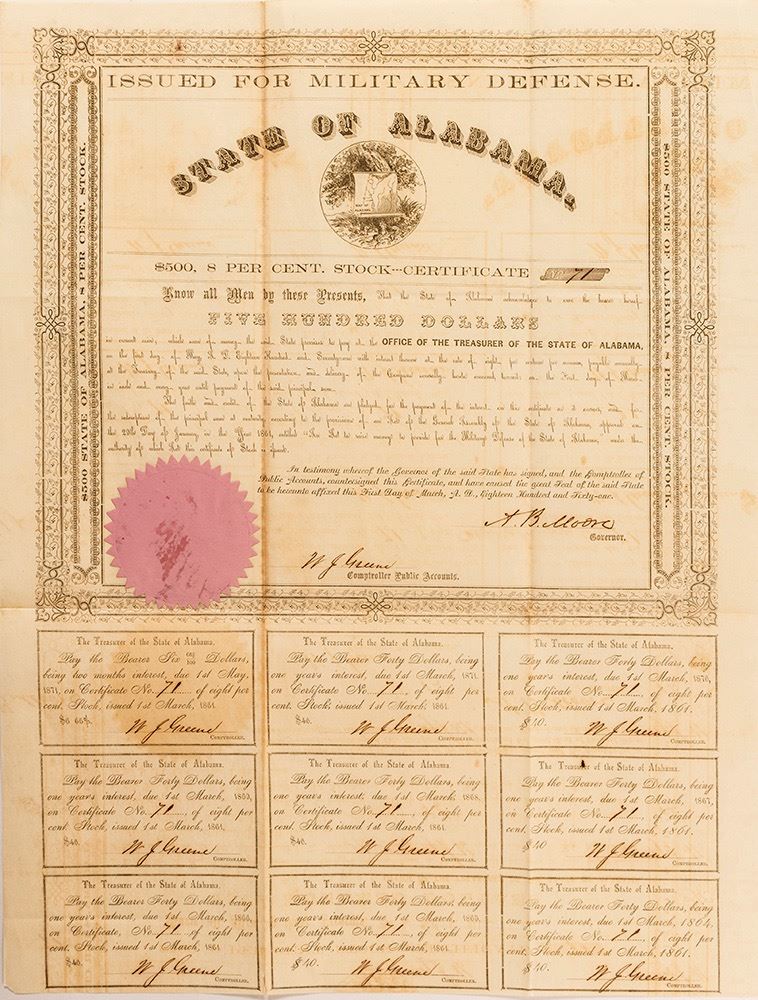 ISSUED FOR MILITARY DEFENSE.
STATE OF ALABAMA.
MAP OF ALABAMA
$500, 8 PER CENT. STOCK---CERTIFICATE No 71
Know all Men by these Presents, That the State of Alabama acknowledges to owe the bearer hereof,
FIVE HUNDRED DOLLARS
in current coin; which sum of money the said State promises to pay at the OFFICE OF THE TREASURER OF THE STATE OF ALABAMA,
on the first day of May A. D. Eighteen Hundred and Seventy-one with interest thereon at the rate of eight per centum per annum, payable annually
at the Treasury of the said State, upon the presentation and delivery of the Coupons severally hereto annexed, thereon on the First day of March
in each and every year until payment of the said principal sum.
The faith and credit of the State of Alabama are pledged for the payment of the interest on this certificate as it accrues, and for
the redemption of the principal sum at maturity according to the provisions of an Act of the General Assembly of the State of Alabama, approved on
the 29th Day of January in the Year 1861, entitled "An Act to raise money to provide for the Military Defense of the State of Alabama," under the
authority of which Act this certificate of Stock is issued.
In testimony whereof the Governor of the said State has signed, and the Comptroller of
Public Accounts, countersigned this Certificate, and have caused the great Seal of the said State
to be hereunto affixed this First Day of March, A. D., Eighteen Hundred and Sixty-one.
A. B. Moore
Governor.
W J Greene
Comptroller Public Accounts.
$500 STATE OF ALABAMA, 8 PER CENT. STOCK.
$500 STATE OF ALABAMA, 8 PER CENT. STOCK.
The Treasurer of the State of Alabama.
Pay the Bearer Six 66⅔/100 Dollars,
being two months interest, due 1st May,
1871, on Certificate No. 71 of eight per
cent. Stock, issued 1st March, 1861
$6 66⅔.
W J Greene
COMPTROLLER.
The Treasurer of the State of Alabama.
Pay the Bearer Forty Dollars, being
one years interest, due 1st March, 1871,
on Certificate No. 71, of eight per
cent. Stock, issued 1st March, 1861
$40.
W J Greene
COMPTROLLER.
The Treasurer of the State of Alabama.
Pay the Bearer Forty Dollars, being
one years interest, due 1st March, 1870,
on Certificate No. 71, of eight per
cent. Stock, issued 1st March, 1861.
$40.
W J Greene
COMPTROLLER.
The Treasurer of the State of Alabama.
Pay the Bearer Forty Dollars, being
one years interest, due 1st March, 1869,
on Certificate No. 71, of eight per
cent. Stock, issued 1st March, 1861.
$40.
W J Greene
COMPTROLLER.
The Treasurer of the State of Alabama.
Pay the Bearer Forty Dollars, being
one years interest, due 1st March, 1868,
on Certificate No. 71, of eight per
cent. Stock, issued 1st March, 1861
$40.
W J Greene
COMPTROLLER.
The Treasurer of the State of Alabama.
Pay the Bearer Forty Dollars, being
one years interest, due 1st March, 1867,
on Certificate No. 71, of eight per
cent. Stock, issued 1st March, 1861.
$40
W J Greene
COMPTROLLER.
The Treasurer of the State of Alabama.
Pay the Bearer Forty Dollars, being
one years interest, due 1st March, 1866,
on Certificate, No. 71 of eight per
cent. Stock, issued 1st March, 1861
$40.
W J Greene
COMPTROLLER.
The Treasurer of the State of Alabama.
Pay the Bearer Forty Dollars, being
one years interest, due 1st March, 1865,
on Certificate No. 71, of eight per
cent. Stock, issued 1st March, 1861
$40.
W J Greene
COMPTROLLER.
The Treasurer of the State of Alabama.
Pay the Bearer Forty Dollars, being
one years interest, due 1st March, 1864,
on Certificate No. 71, of eight per
cent. Stock, issued 1st March, 1861.
$40.
W J Greene
COMPTROLLER.